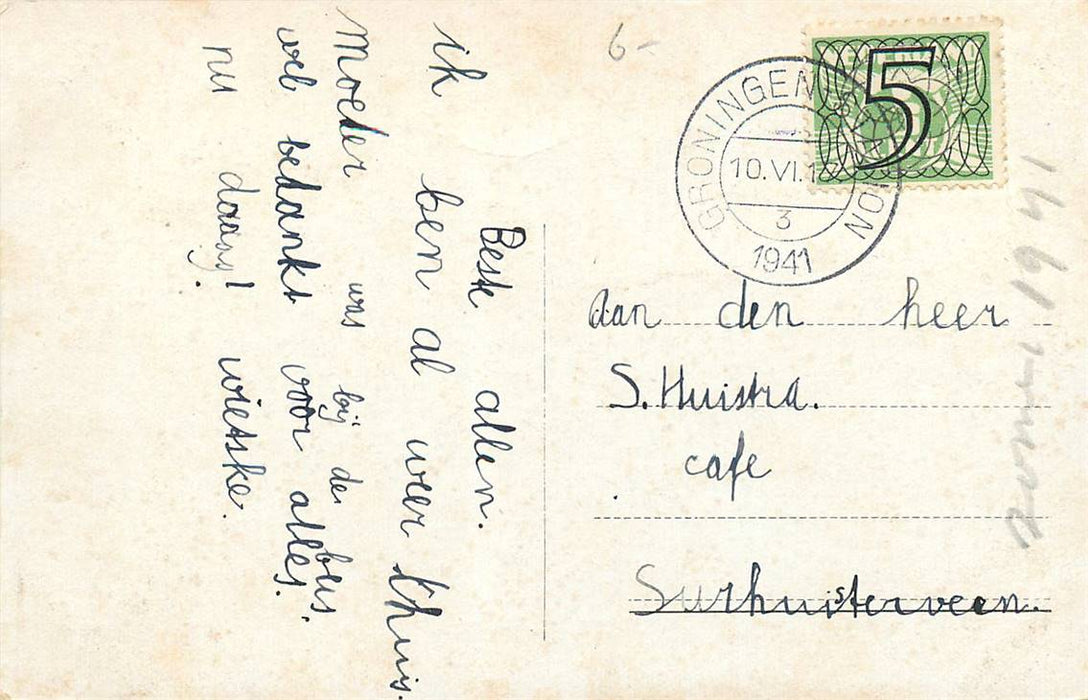 Beste allen.
ik ben al weer thuis.
Moeder was bij de bus.
wel bedankt voor alles.
nu daag! wietske.
6-
5
GRONINGEN STATION
10.VI.1
3
1941
Aan den heer
S. Huistra.
cafe
Surhuisterveen.
1941